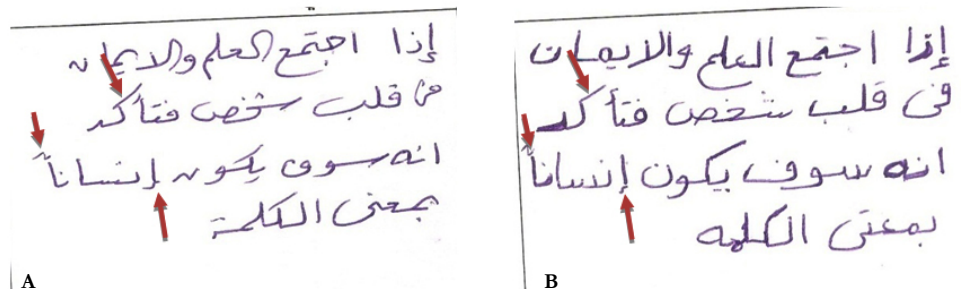 إذا اجتمع العلم والايمان
في قلب شخص فتأكد
انه سوف يكون إنساناً
بمعنى الكلمة
A
إذا اجتمع العلم والايمان
فى قلب شخص فتأكد
انه سوف يكون إنساناً
بمعنى الكلمه
B